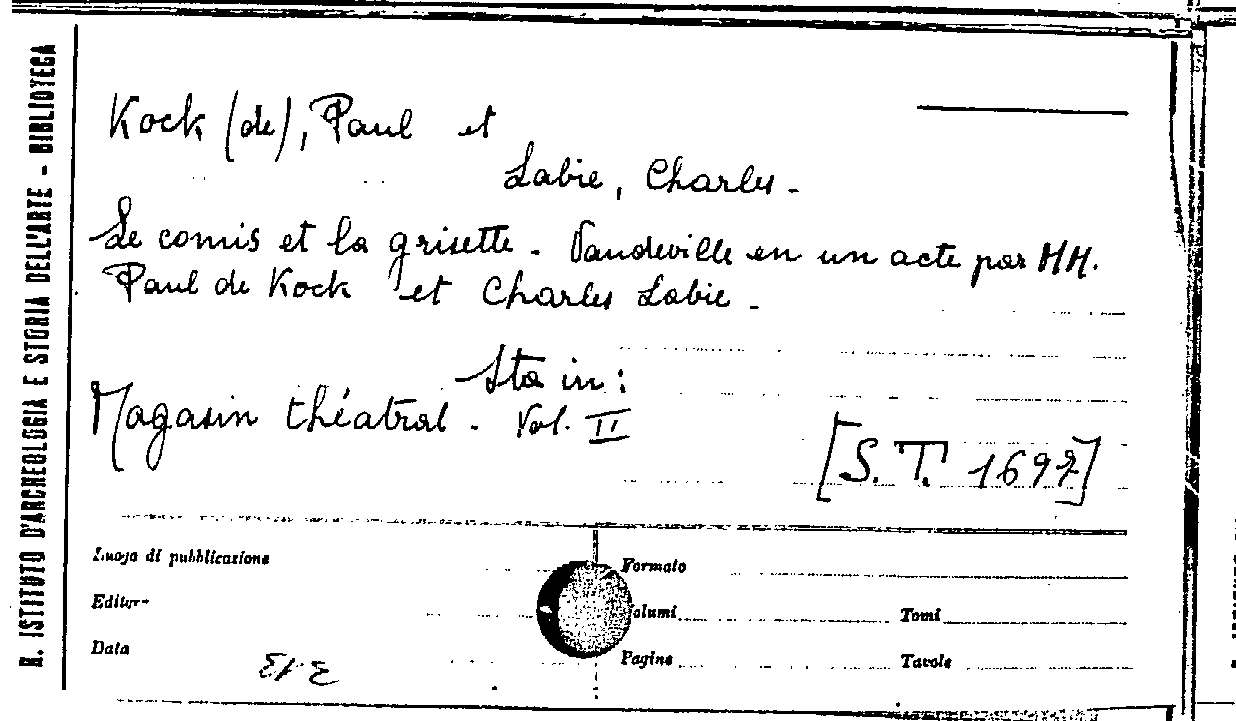 R. ISTITUTO D'ARCHEOLOGIA E STORIA DELL'ARTE - BIBLIOTECA
Kock (de), Paul et
Labie, Charles -
Le comis et la grisette - Vaudeville en un acte par MM.
Paul de Kock et Charles Labie -
Sta in:
Magasin théatral - Vol. II
[S. T. 1697]
Luogo di pubblicazione
Formato
Editore
Volumi
Tomi
Data
Pagine
Tavole